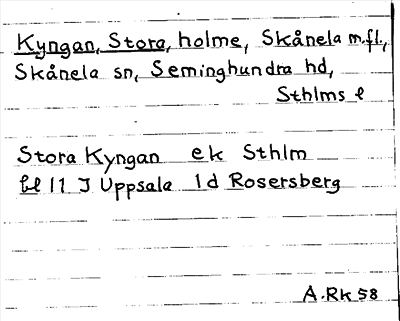 Kyngan, Stora, holme, Skånela m.fl.,
Skånela sn, Seminghundra hd,
Sthlms l
Stora Kyngan ek Sthlm
bl 11 I Uppsala 1d Rosersberg
A.Rk 58